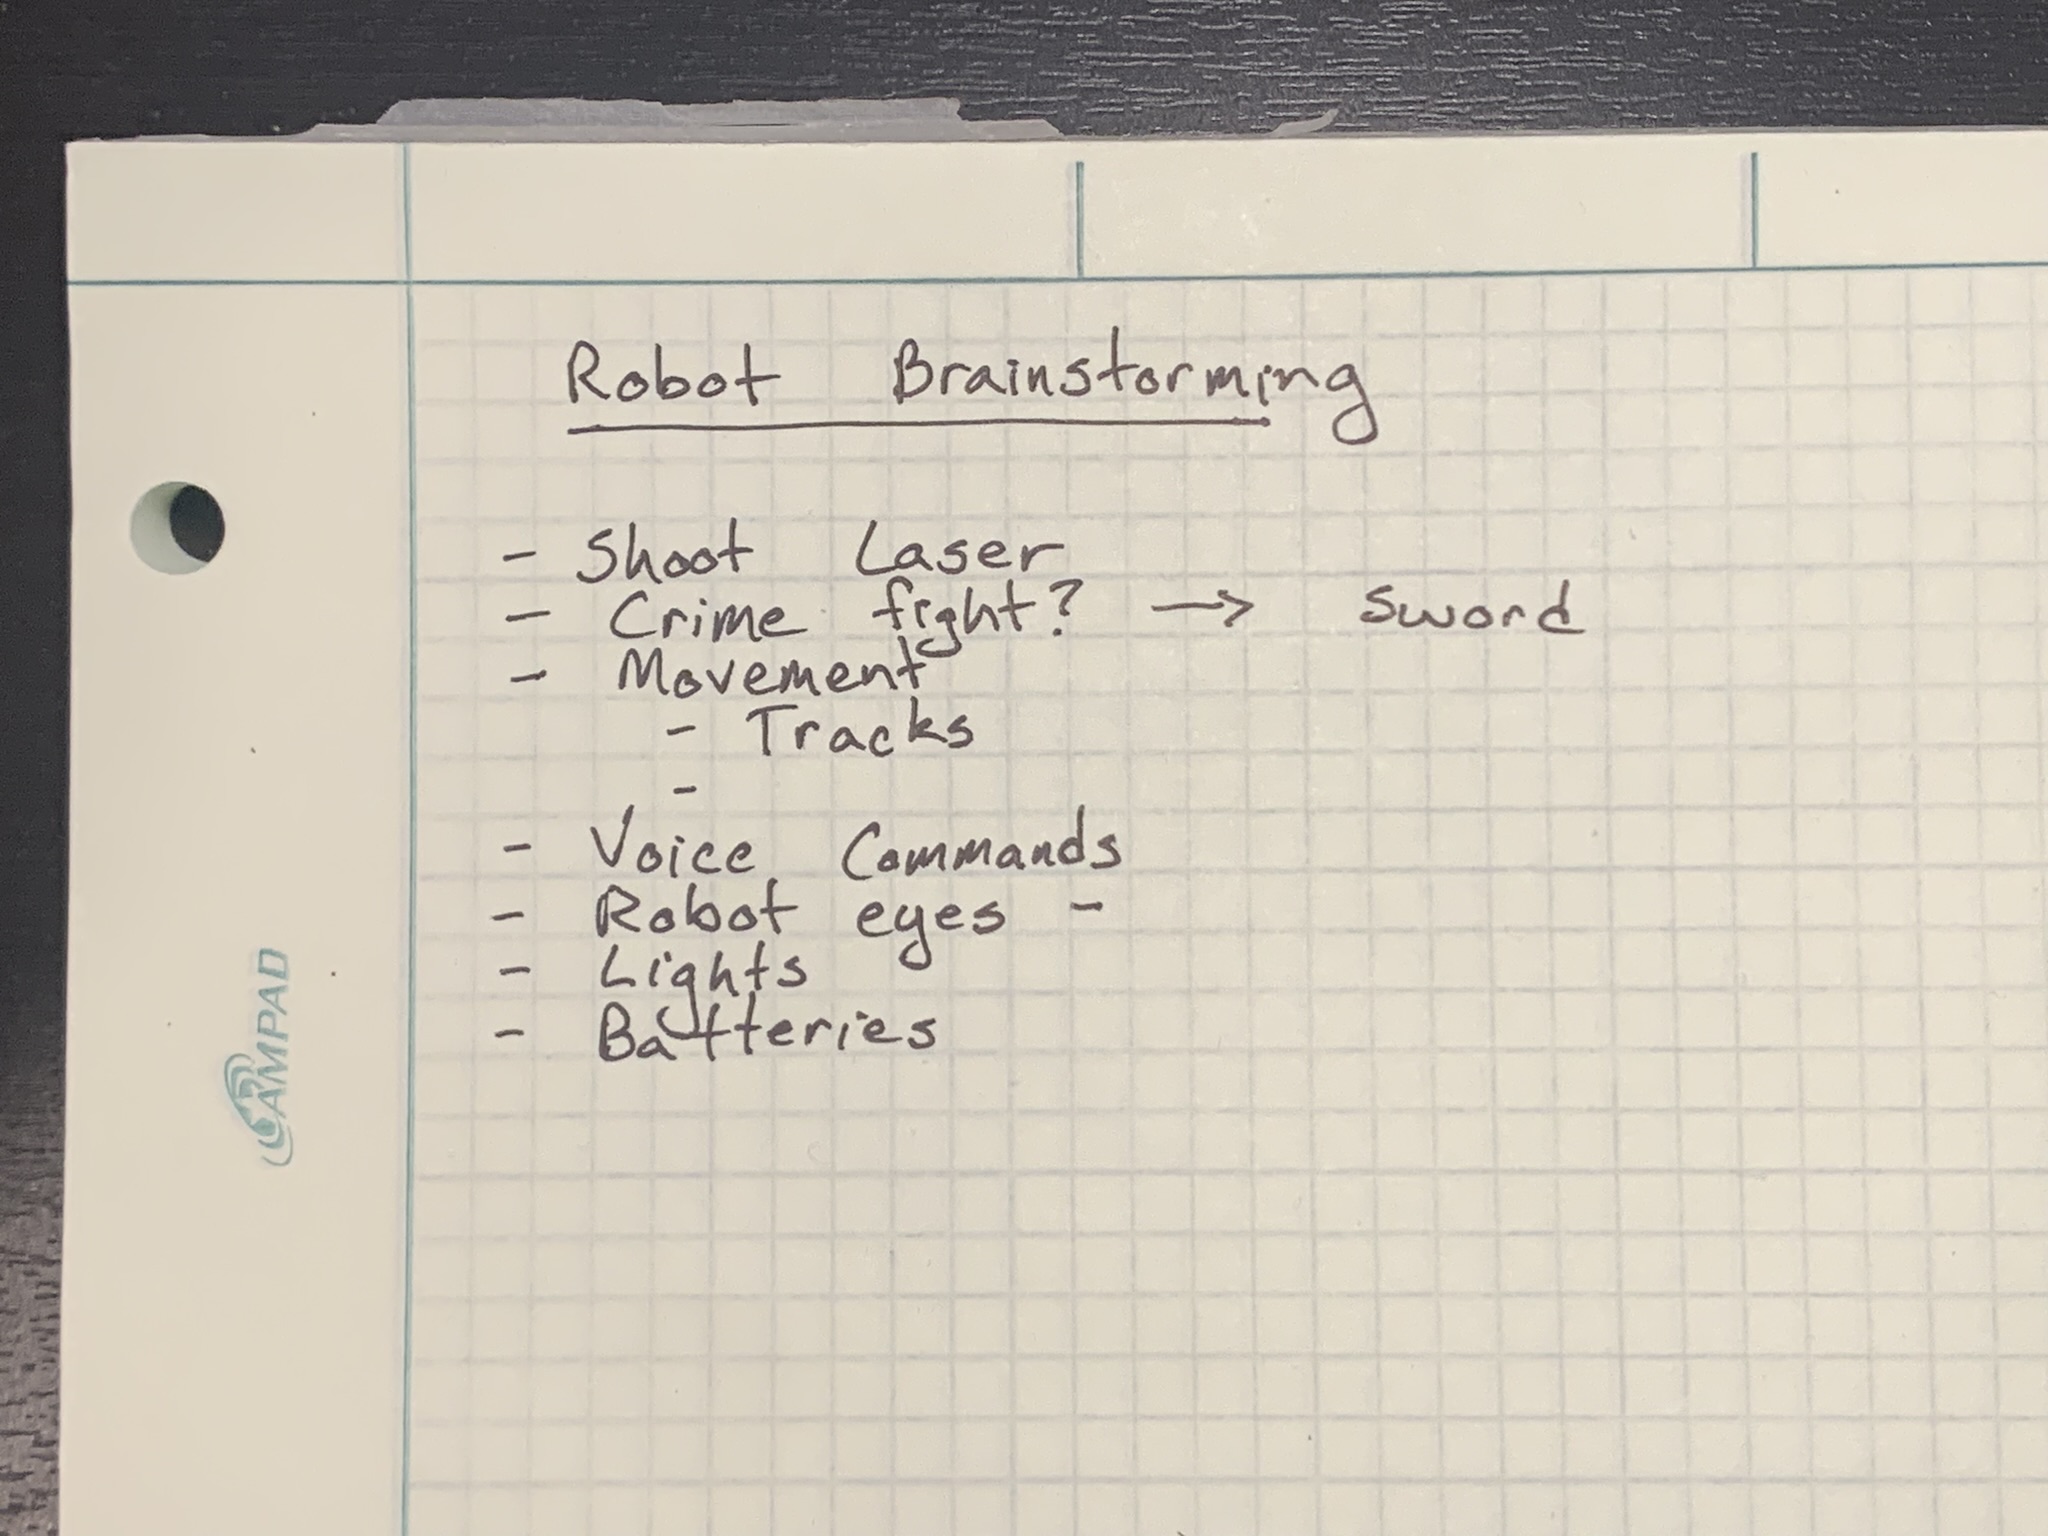 Robot Brainstorming
- Shoot Laser
- Crime fight? → Sword
- Movement
- Tracks
-
- Voice Commands
- Robot eyes -
- Lights
- Batteries
CAMPAD